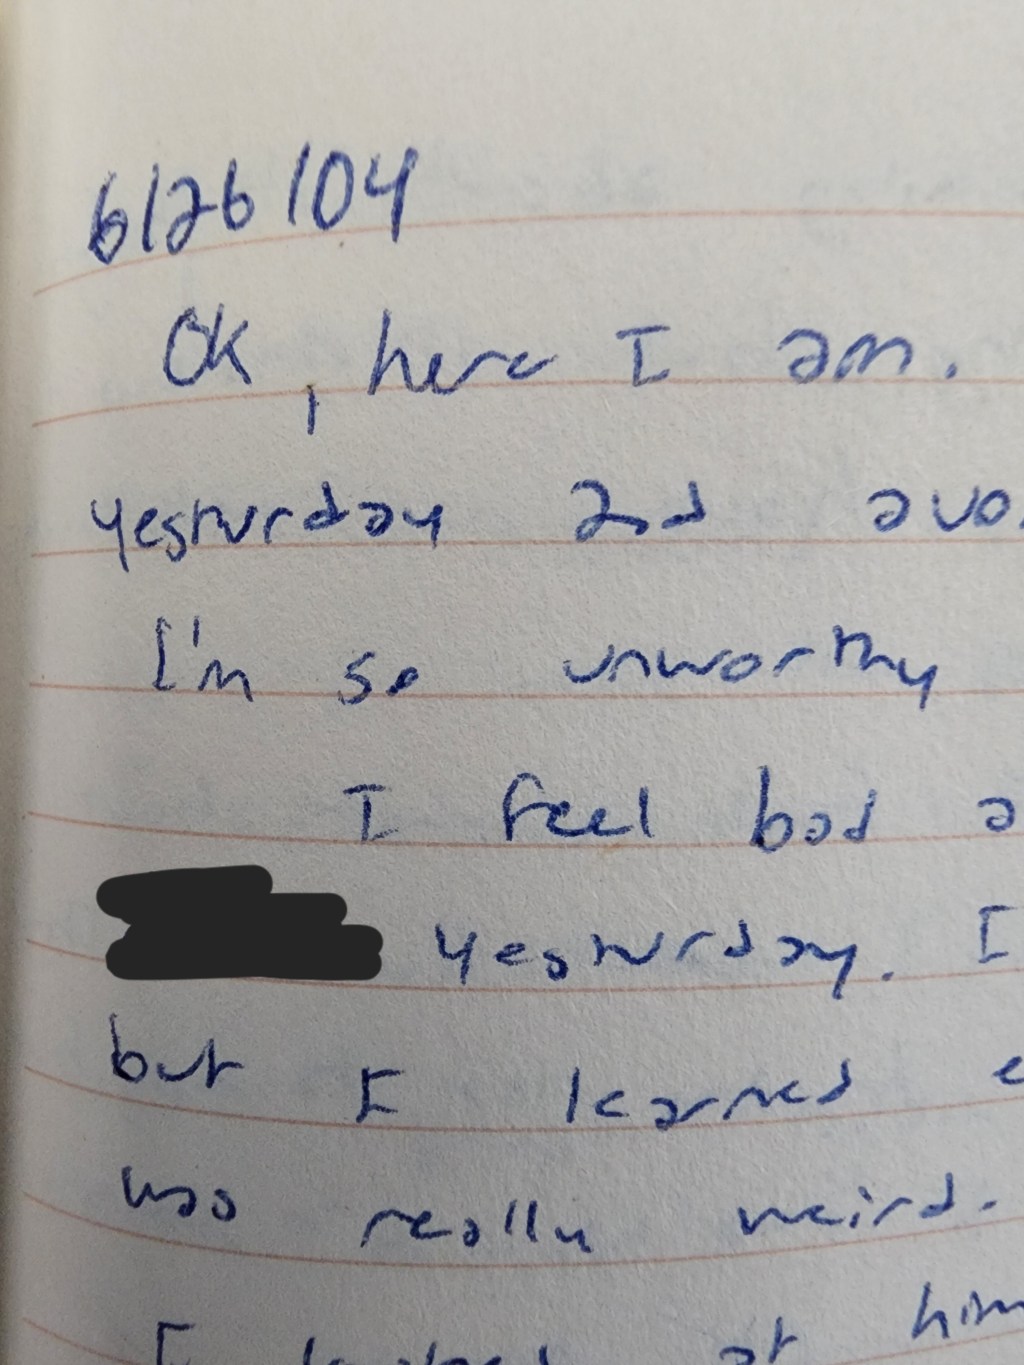 6/26/04
Ok, here I am.
yesturday and avo
I'm so unworthy
I feel bad a
yesturday. I
but I learned e
was really weird.
I looked at him